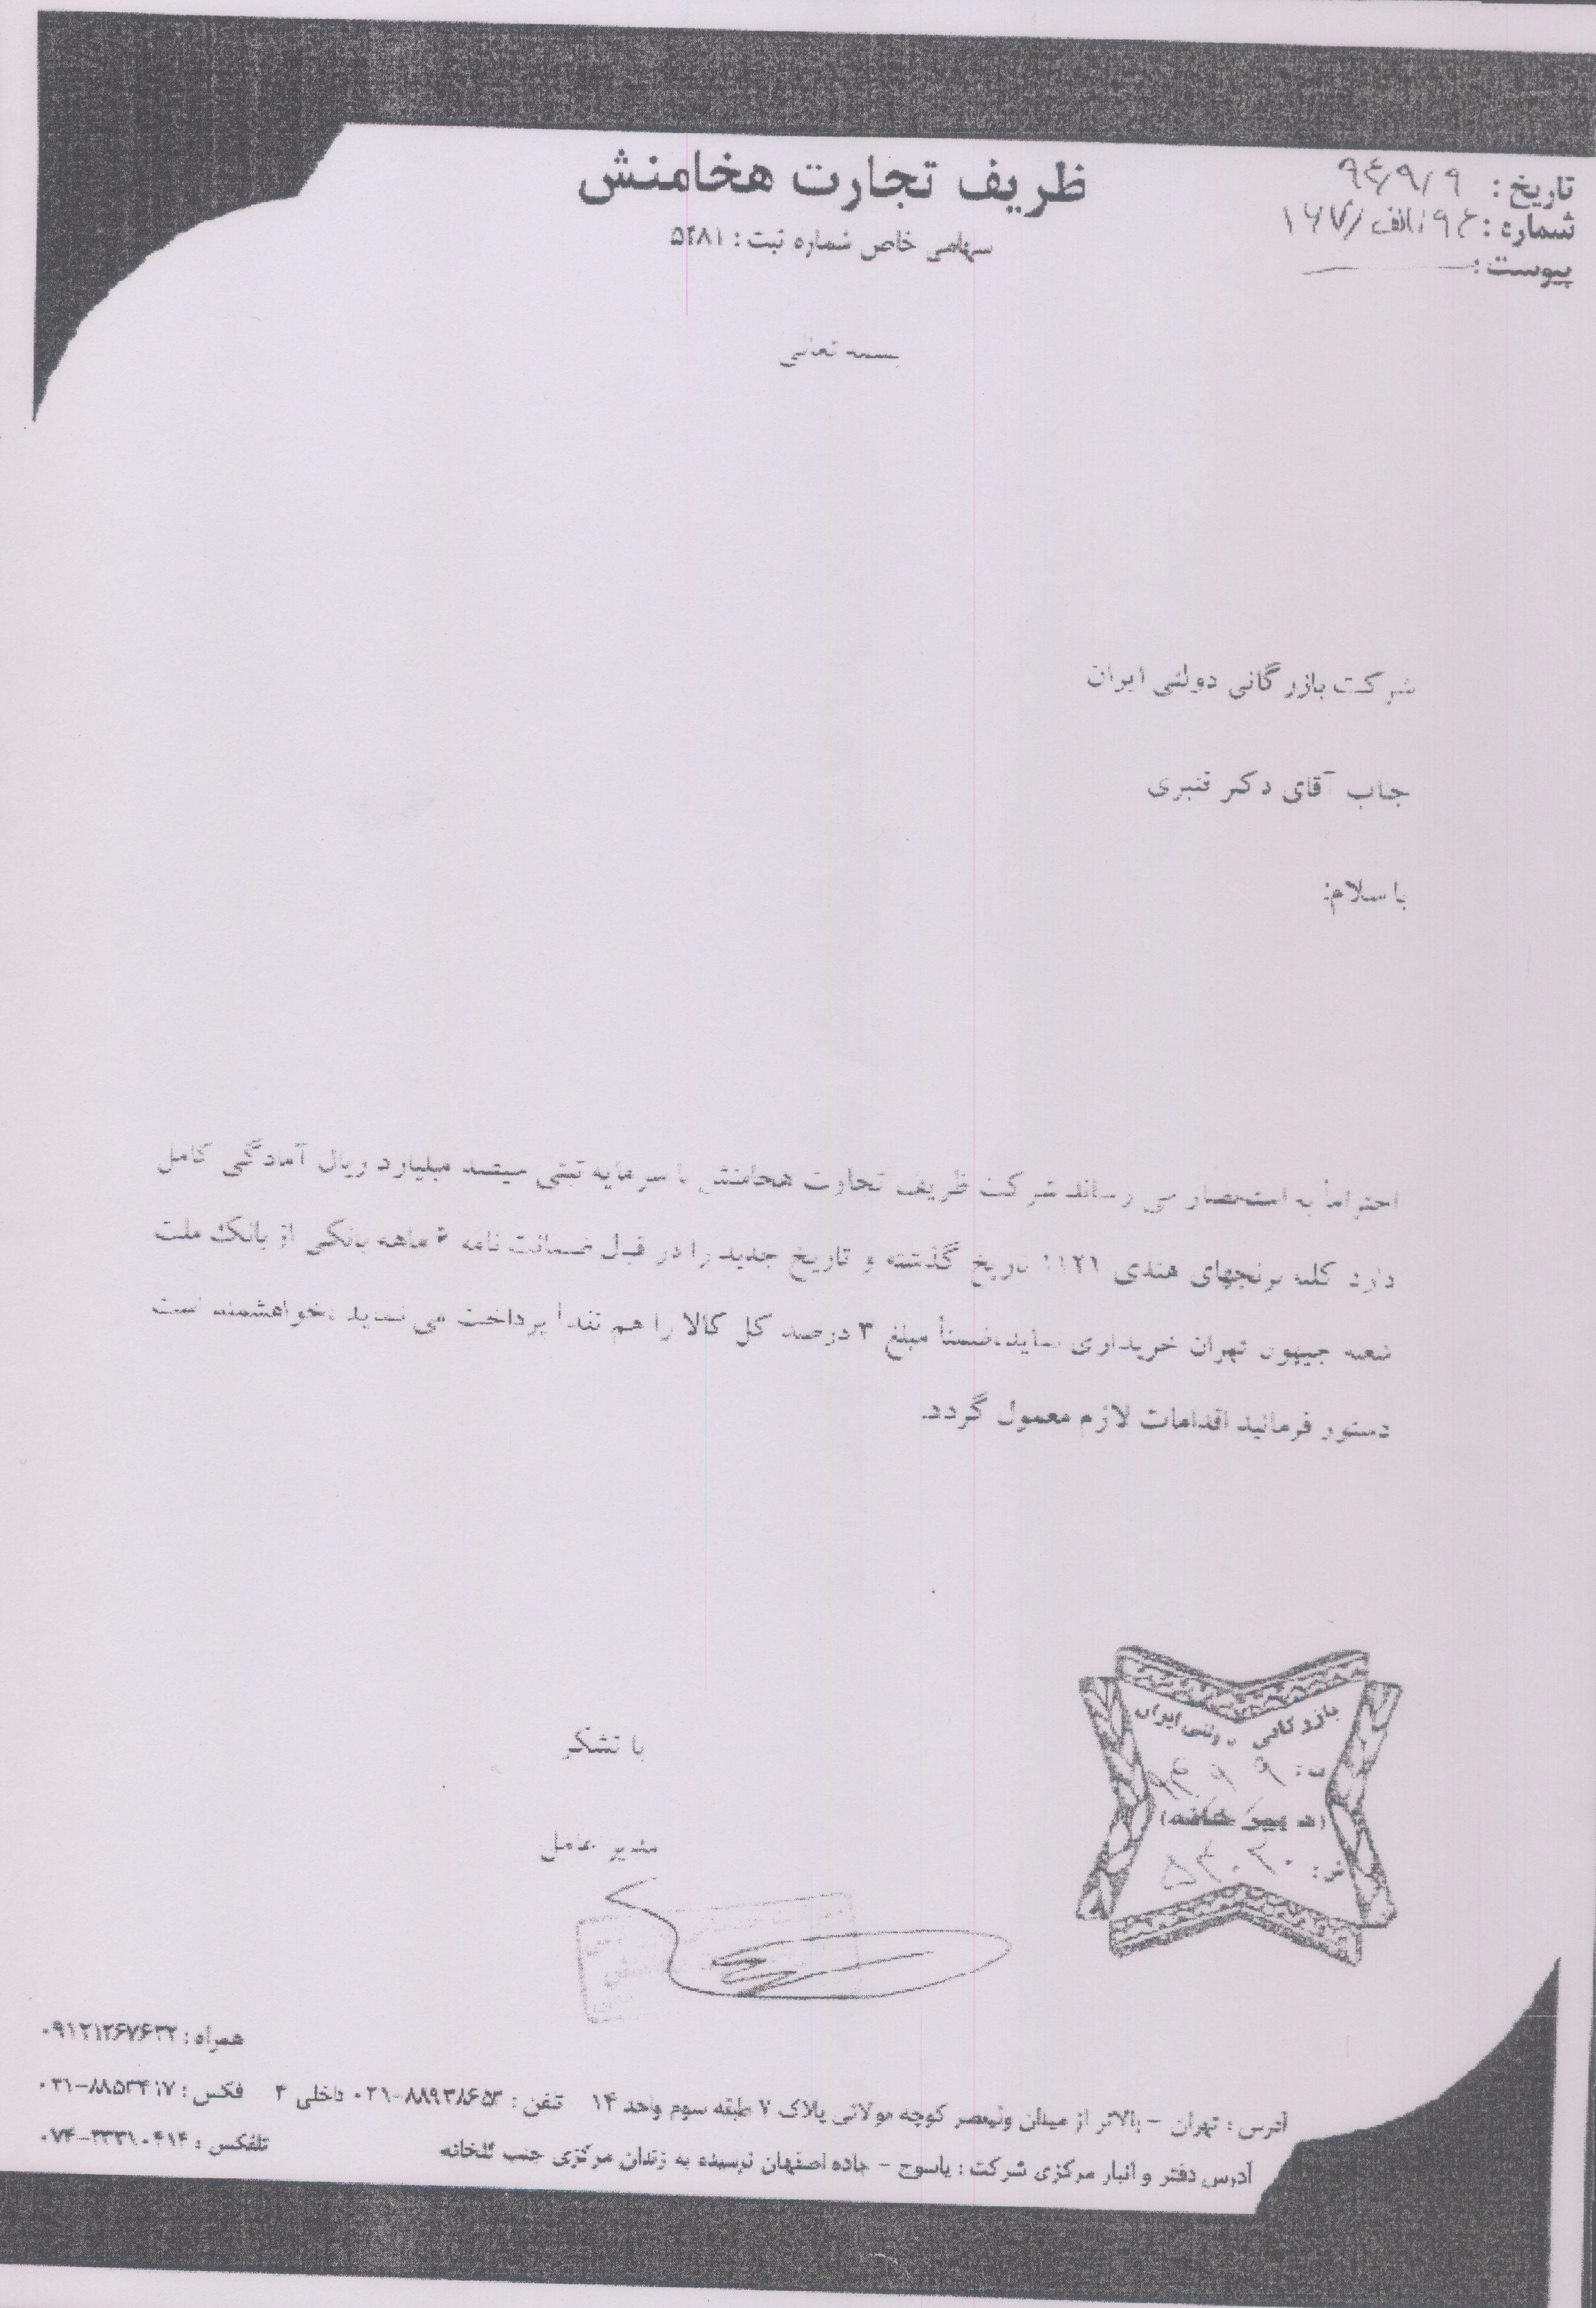 ظریف تجارت هخامنش
سهامی خاص شماره ثبت : ۵۴۸۱
تاریخ : ۹۴/۹/۹
شماره : ۹۴/الف/۱۶۷
پیوست :
بسمه تعالی
شرکت بازرگانی دولتی ایران
جناب آقای دکتر قنبری
با سلام:
احتراماً به استحضار می رساند شرکت ظریف تجارت هخامنش با سرمایه ثبتی سیصد میلیارد ریال آمادگی کامل
دارد کلیه برنجهای هندی ۱۱۲۱ تاریخ گذشته و تاریخ جدید را در قبال ضمانت نامه ۶ ماهه بانکی از بانک ملت
شعبه جیهون تهران خریداری نماید،ضمناً مبلغ ۳ درصد کل کالا را هم نقداً پرداخت می نماید .خواهشمند است
دستور فرمائید اقدامات لازم معمول گردد.
بازرگانی دولتی ایران
ت: ۹۴/۹/۹
(دبیرخانه)
ش: ۵۴۰۲۰
با تشکر
مدیر عامل
همراه : ۰۹۱۲۱۲۶۷۶۳۲
آدرس : تهران – بالاتر از میدان ولیعصر کوچه مولائی پلاک ۷ طبقه سوم واحد ۱۴ تلفن : ۸۸۹۳۸۶۵۳–۰۲۱ داخلی ۴ فکس : ۸۸۵۳۴۱۷–۰۲۱
آدرس دفتر و انبار مرکزی شرکت : یاسوج – جاده اصفهان نرسیده به زندان مرکزی جنب گلخانه تلفکس : ۳۳۳۱۰۴۱۴–۰۷۴